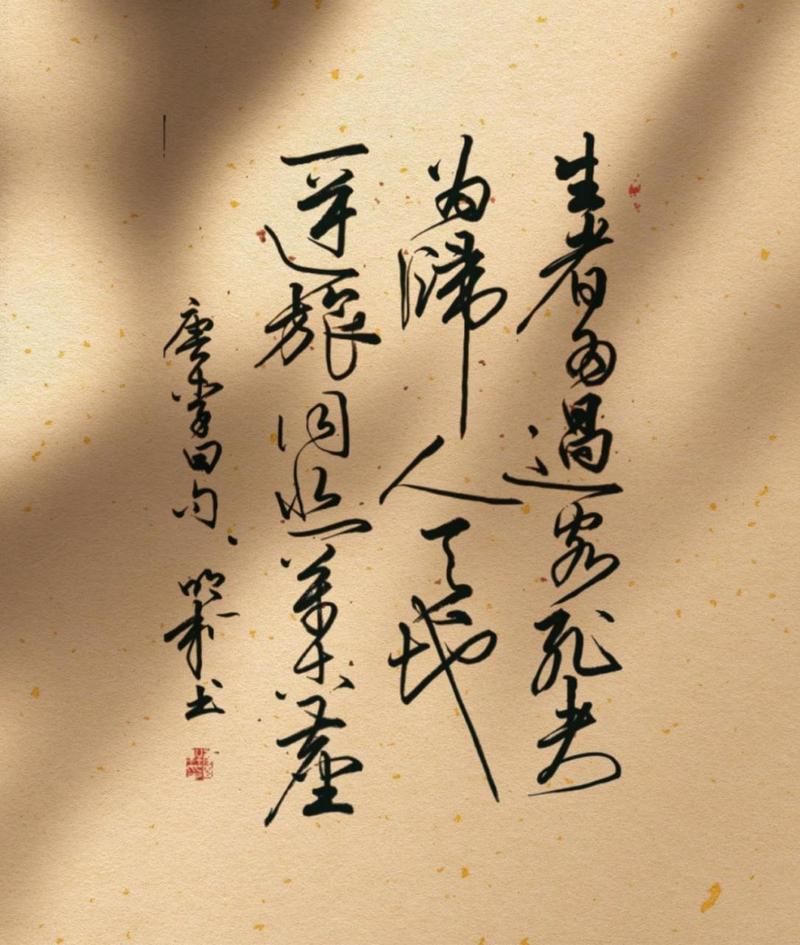 生者为過客死者
为歸人天地
一逆旅同悲萬古塵
唐李白句 明书